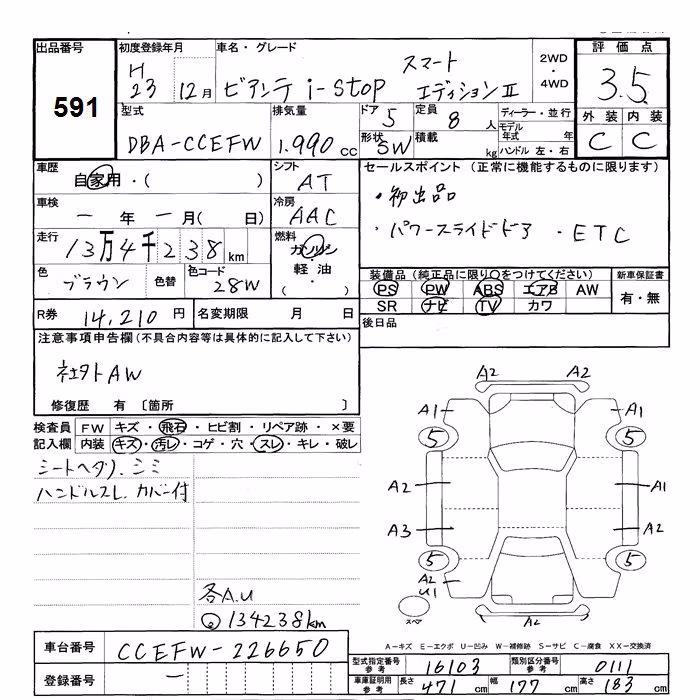 出品番号 初度登録年月 車名・グレード 2WD・4WD 評価点
591 H23 12月 ビアンテ i-stop スマートエディションⅡ 3.5
型式 排気量 ドア 5 定員 8人 ディーラー・並行 外装 内装
DBA-CCEFW 1.990cc 形状 SW 積載 kg モデル年式 年 ハンドル 左・右 C C
車歴 自家用・( ) シフト AT セールスポイント (正常に機能するものに限ります)
車検 一年一月( 日) 冷房 AAC ・初出品
走行 13万4千238km 燃料 ガソリン・軽油・( ) ・パワースライドドア ・ETC
色 ブラウン 色替 色コード 28W 装備品(純正品に限り○をつけてください) 新車保証書
PS PW ABS エアB AW 有・無
SR ナビ TV カワ
R券 14,210円 名変期限 月 日 後日品
注意事項申告欄(不具合内容等は具体的に記入して下さい)
社外AW
修復歴 有 〔箇所 〕
検査員記入欄 FW キズ・飛石・ヒビ割・リペア跡・×要
内装 キズ・汚レ・コゲ・穴・スレ・キレ・破レ
シートヘタリ、シミ
ハンドルスレ カバー付
各A.U
134238km
A2 A2
A1 A1
5 5
A2 A1
A3 A2
5 5
A2
U1
スペア A2
A-キズ E-エクボ U-凹み W-補修跡 S-サビ C-腐食 XX-交換済
車台番号 CCEFW-226650
登録番号 一
型式指定番号参考 16103 類別区分番号参考 0111
車庫証明用参考 長さ 471cm 幅 177cm 高さ 183cm